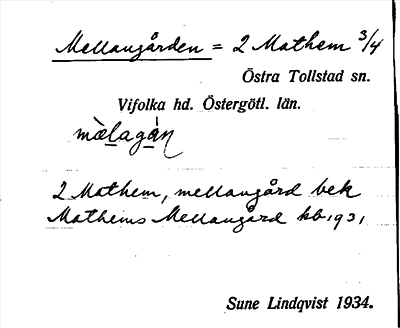 Mellangården = 2 Mathem 3/4
Östra Tollstad sn.
Vifolka hd. Östergötl. län.
mòlagán
2 Mathem, mellangård bek
Mathems Mellangård kb. 1931
Sune Lindqvist 1934.